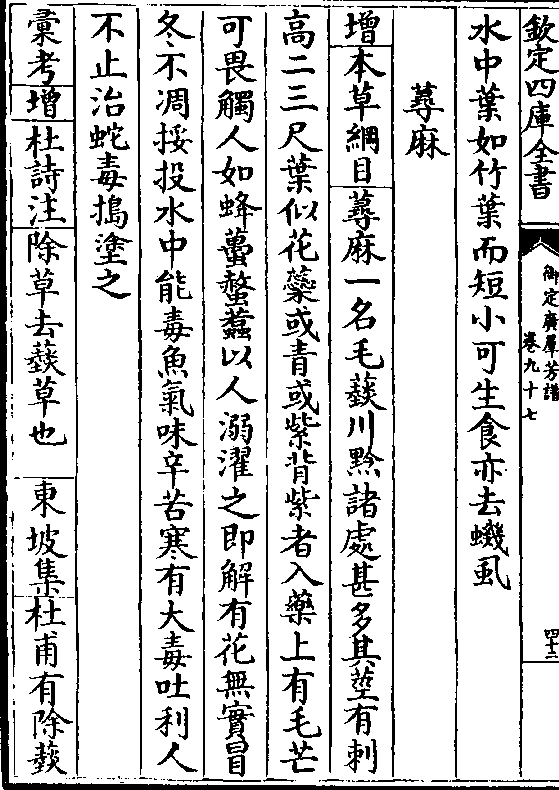 欽定四庫全書
御定廣羣芳譜
卷九十七
四十二
水中葉如竹葉而短小可生食亦去蟣虱
蕁麻
增本草綱目蕁麻一名毛蕁川黔諸處甚多其莖有刺
高二三尺葉似花蘂或青或紫背紫者入藥上有毛芒
可畏觸人如蜂蠆螫蠚以人溺濯之即解有花無實冒
冬不凋挼投水中能毒魚氣味辛苦寒有大毒吐利人
不止治蛇毒搗塗之
彙考增杜詩注除草去蕁草也 東坡集杜甫有除蕁